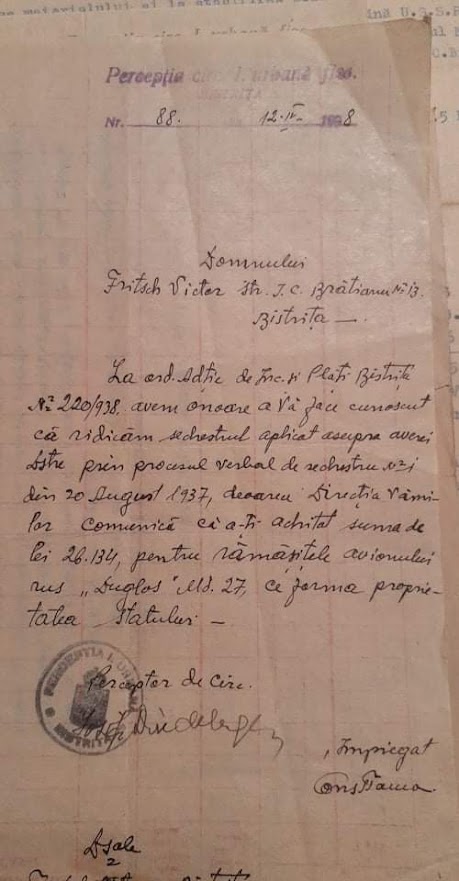 Percepția circ. I. urbană fisc.
BISTRIȚA
Nr. 88. 12·IV– 1938
Domnului
Fritsch Victor Str. I. C. Brătianu No 13.
Bistrița —.
La ord. Adție de Inc. și Plăți Bistrița
No 220/938. avem onoare a Vă face cunoscut
că ridicăm sechestrul aplicat asupra averei
Dstre prin procesul verbal de sechestru No 1
din 20 August 1937, deoarece Direcția Vămi-
lor comunică că a-ți achitat suma de
lei 26.134, pentru rămășițele avionului
rus „Duglos" Md. 27, ce forma proprie-
tatea Statului —
Perceptor de Circ.
PERCEPȚIA I. URBANĂ
BISTRIȚA
Impiegat
Dsale
2